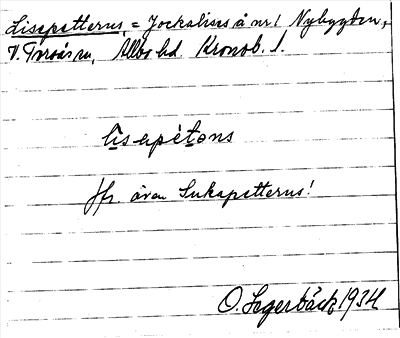 Lisapetterns, = Jockalisas å nr 1 Nybygden,
V. Torsås sn, Allbo hd. Kronob. l.
lisapètəns
Jfr. även Lukapetterns!
O. Lagerbäck 1934